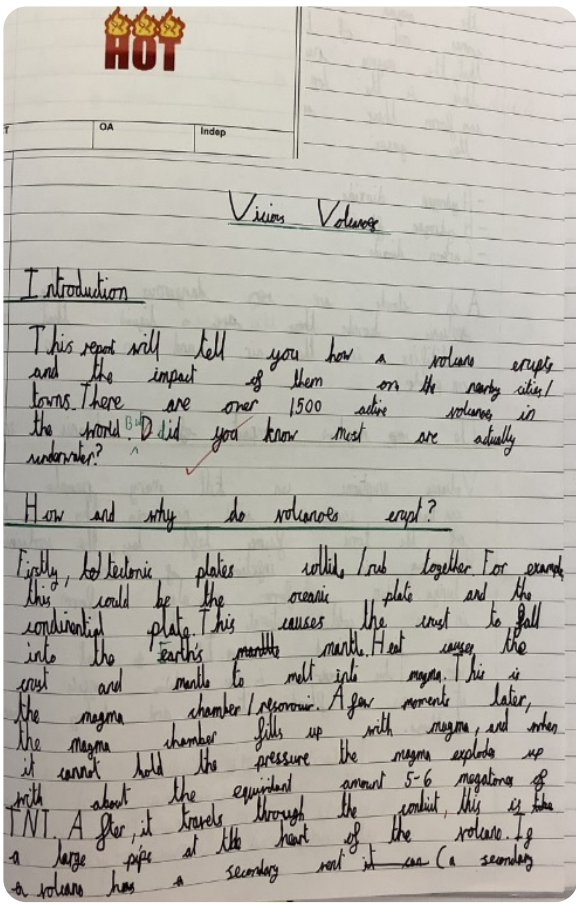 HOT
OA
Indep
Vicious Volcanoes
Introduction
This report will tell you how a volcano erupts
and the impact of them on the nearby cities/
towns. There are over 1500 active volcanoes in
the world. But Did you know most are actually
underwater?
How and why do volcanoes erupt?
Firstly, tectonic plates collide/rub together For example,
this could be the oceanic plate and the
condinential plate. This causes the crust to fall
into the Earth's mantle. Heat causes the
crust and mantle to melt into magma. This is
the magma chamber/resorvoir. A few moments later,
the magma chamber fills up with magma, and when
it cannot hold the pressure the magma explodes up
with about the equivilant amount 5-6 megatones of
TNT. After, it travels through the conduit, this is
a large pipe at the heart of the volcano. If
a volcano has a secondary vent it can (a secondary